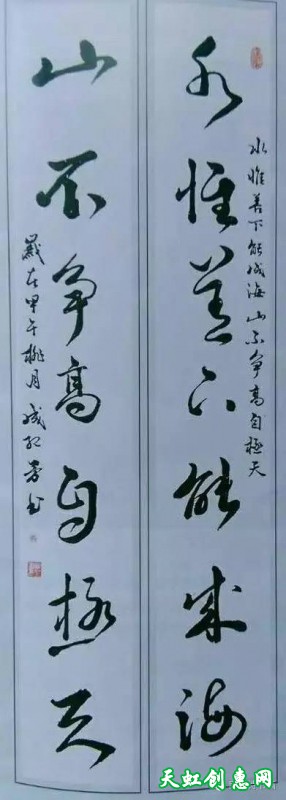 水惟善下能成海
水惟善下能成海山不争高自极天
山不争高自极天
岁在甲午桃月成
书
天虹创惠网